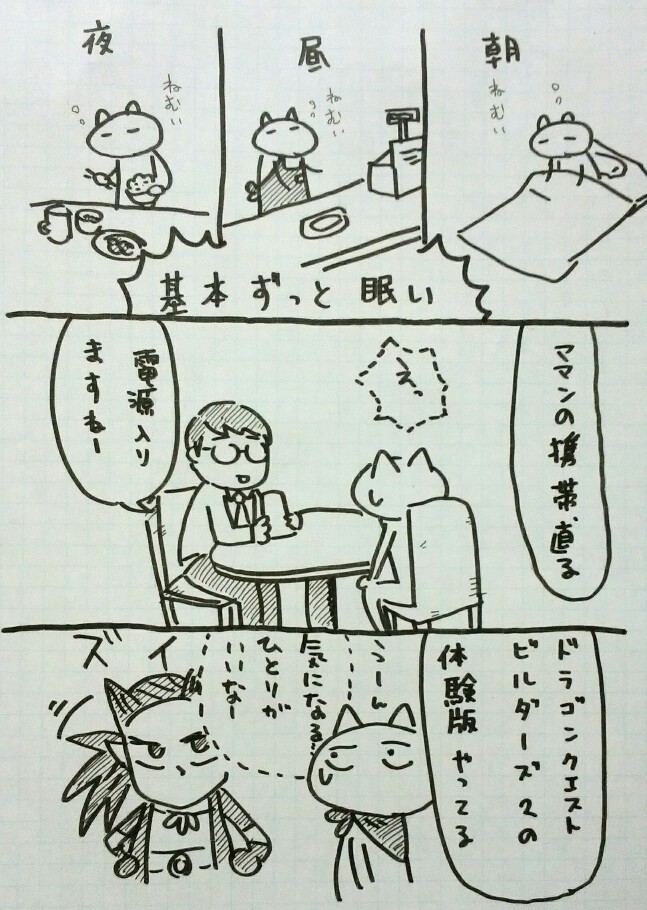 朝
ねむい
昼
ねむい
夜
ねむい
基本ずっと眠い
ママンの携帯直る
えっ
電源入り
ますねー
ドラゴンクエスト
ビルダーズ2の
体験版やってる
うーん
気になる…
ひとりが
いいなー
ズイ